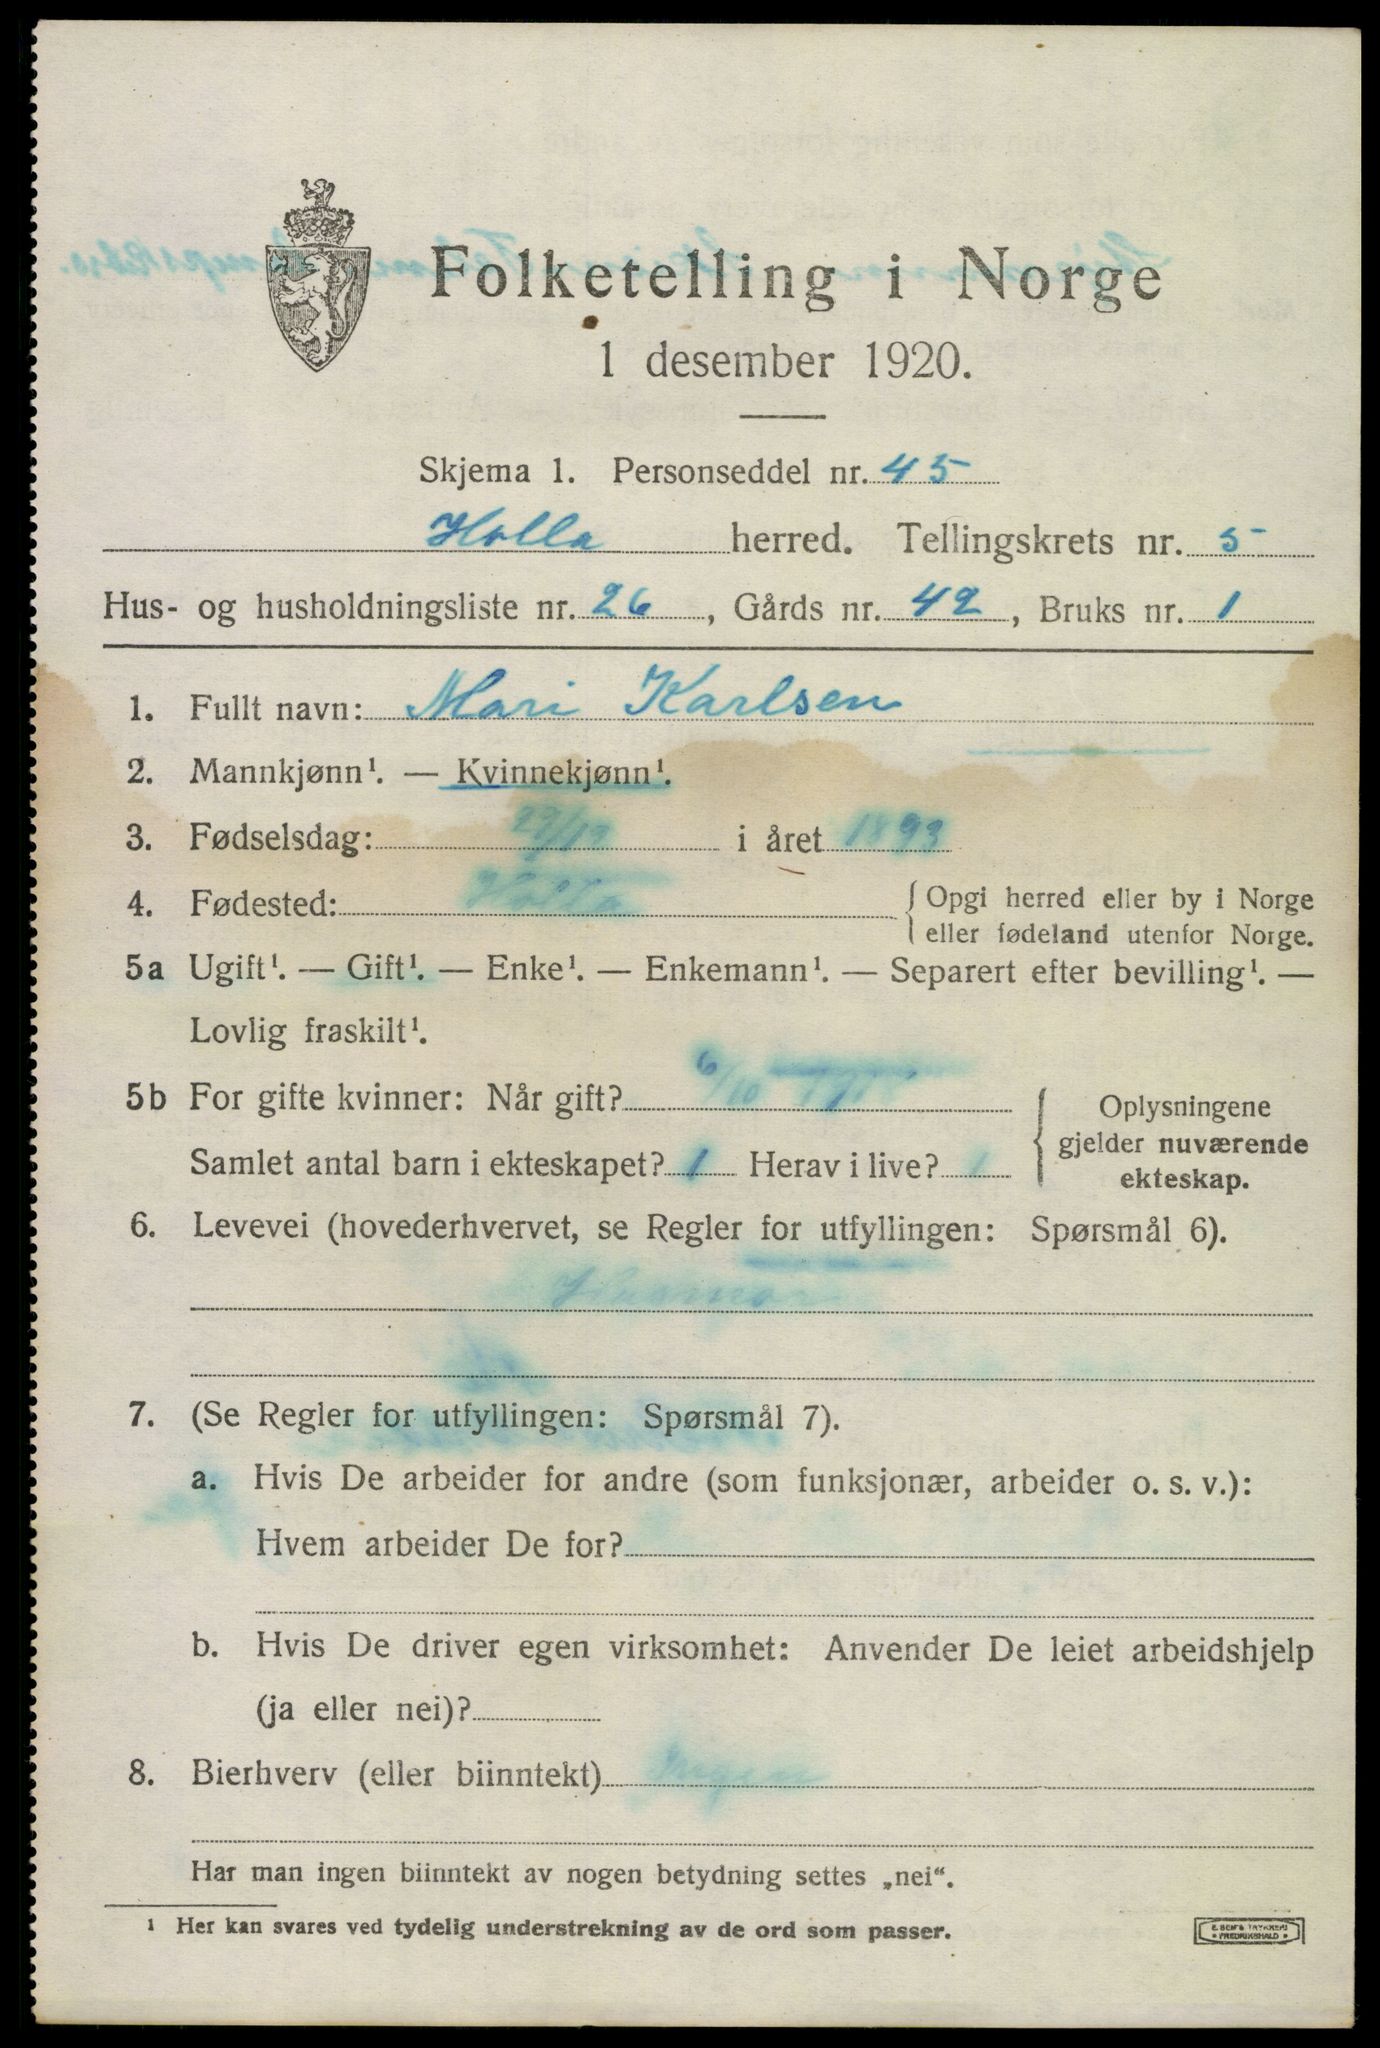 Folketelling i Norge
1 desember 1920.
Skjema 1. Personseddel nr. 45
Holla herred. Tellingskrets nr. 5
Hus- og husholdningsliste nr. 26, Gårds nr. 42, Bruks nr. 1
1. Fullt navn: Mari Karlsen
2. Mannkjønn¹. — Kvinnekjønn¹.
3. Fødselsdag: 29/12 i året 1893
4. Fødested: Holla { Opgi herred eller by i Norge
eller fødeland utenfor Norge.
5a Ugift¹. — Gift¹. — Enke¹. — Enkemann¹. — Separert efter bevilling¹. —
Lovlig fraskilt¹.
5b For gifte kvinner: Når gift? 6/10
Samlet antal barn i ekteskapet? 1 Herav i live? 1
Oplysningene
gjelder nuværende
ekteskap.
6. Levevei (hovederhvervet, se Regler for utfyllingen: Spørsmål 6).
7. (Se Regler for utfyllingen: Spørsmål 7).
a. Hvis De arbeider for andre (som funksjonær, arbeider o. s. v.):
Hvem arbeider De for?
b. Hvis De driver egen virksomhet: Anvender De leiet arbeidshjelp
(ja eller nei)?
8. Bierhverv (eller biinntekt) Ingen
Har man ingen biinntekt av nogen betydning settes „nei“.
¹ Her kan svares ved tydelig understrekning av de ord som passer.
E. SEM'S TRYKKERI
FREDRIKSHALD